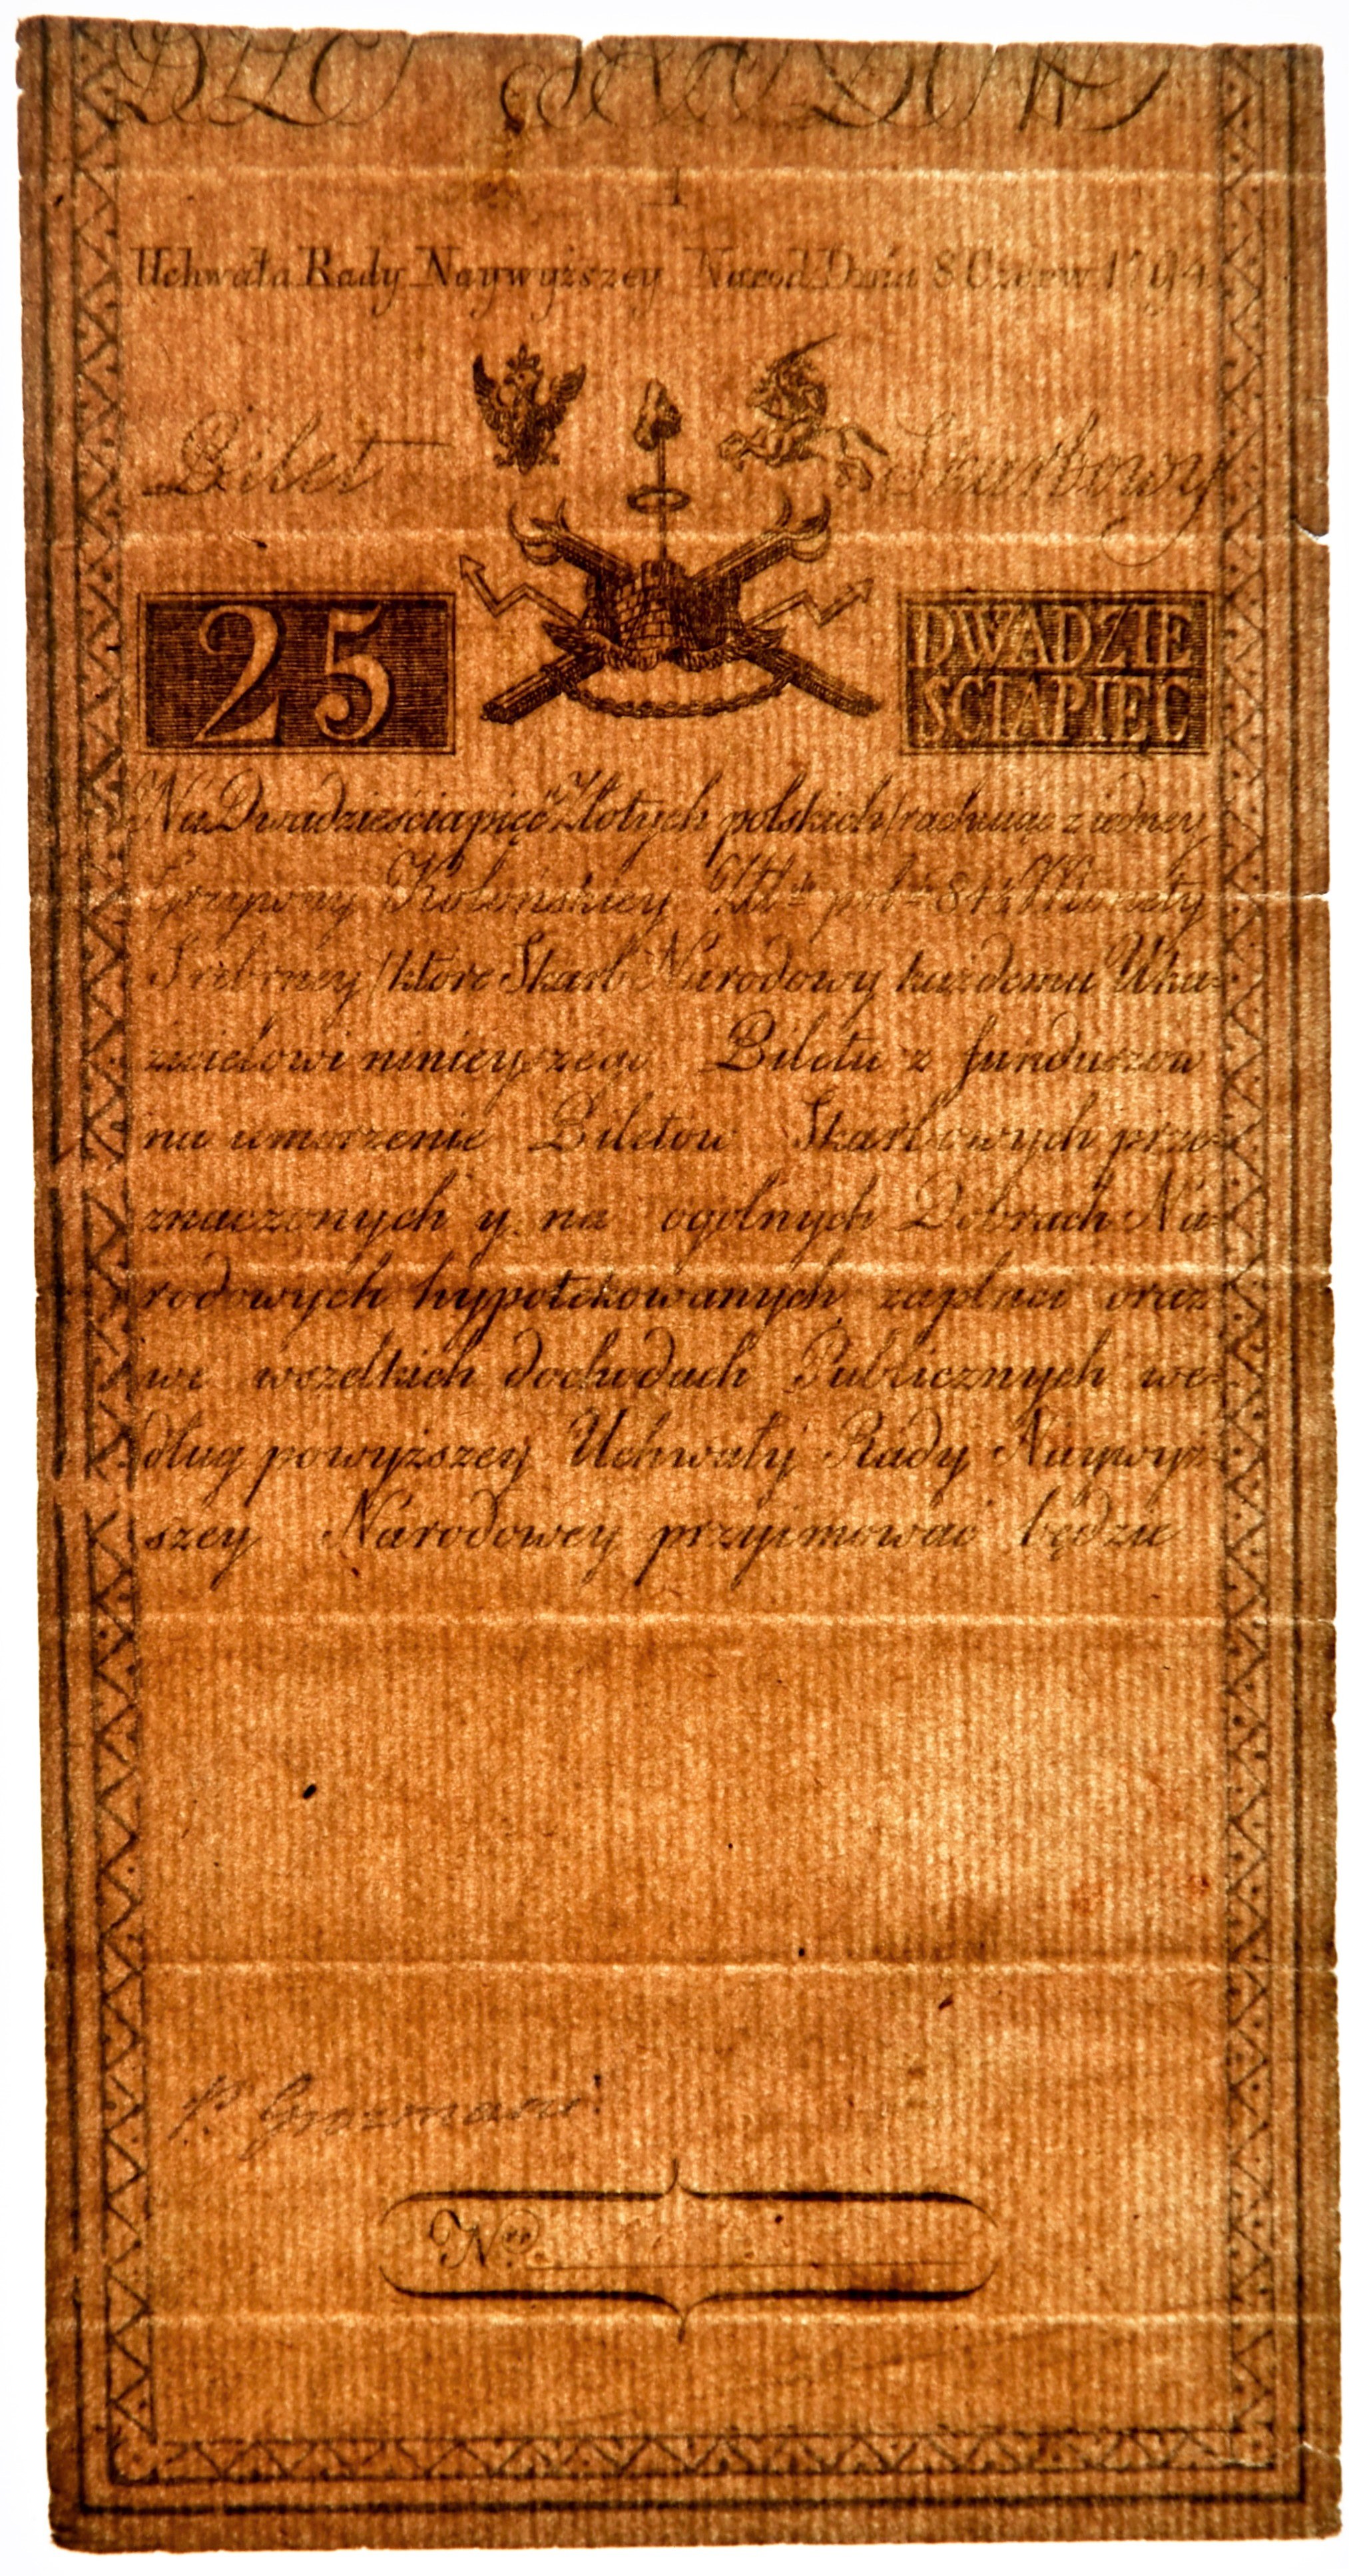 Uchwała Rady Naywyższey Narod: Dnia 8 Czerw 1794
Bilet Skarbowy
25
DWADZIE
SCIAPIEC
Na Dwadzieściapięć Złotych polskich/rachuiąc z iedney
Grzywny Kolońskiey Zł: pol: 84½ Monety
Srebrney/ktore Skarb Narodowy każdemu Uka=
zicielowi ninieyszego Biletu z funduszow
na umorzenie Biletow Skarbowych prze=
znaczonych y na ogolnych Dobrach Na=
rodowych hypotekowanych zapłaci oraz
we wszelkich dochodach Publicznych we=
dług powyższey Uchwały Rady Naywyż=
szey Narodowey przyimować będzie
Nro